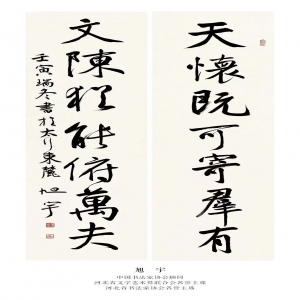 天懷既可寄羣有
文陳猶能俯萬夫
壬寅瑞冬書於太行東麓
旭宇
旭 宇
中国书法家协会顾问
河北省文学艺术界联合会名誉主席
河北省书法家协会名誉主席